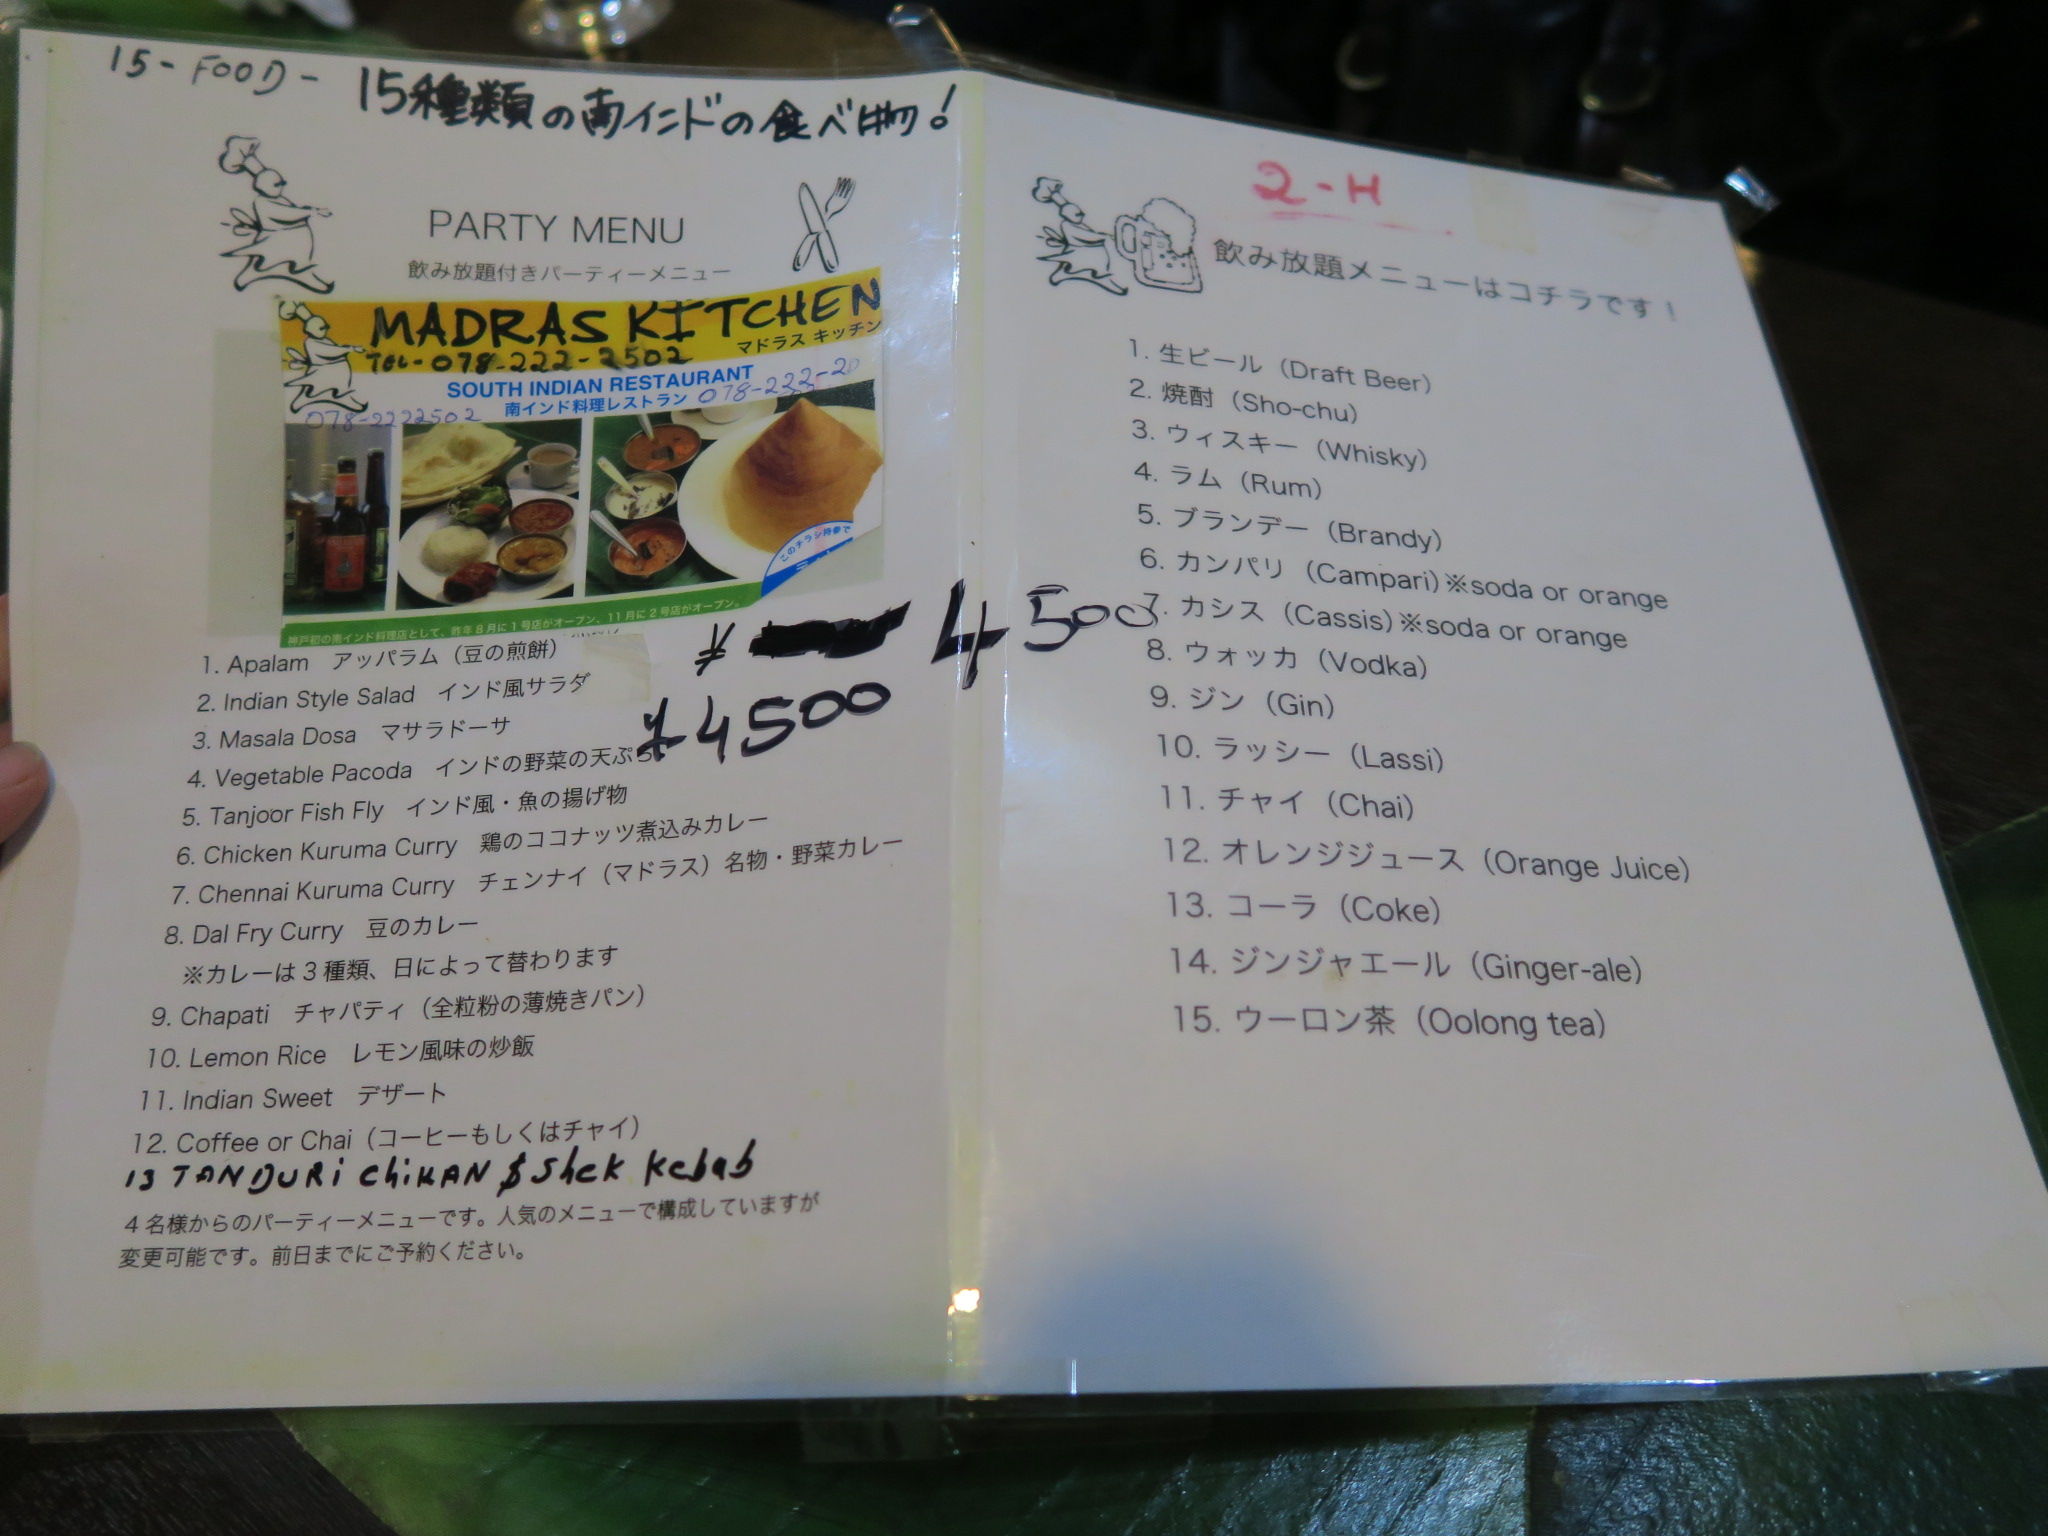 15 - FOOD - 15種類の南インドの食べ物!
PARTY MENU
飲み放題付きパーティーメニュー
MADRAS KITCHEN
マドラス キッチン
TEL-078-222-2502
SOUTH INDIAN RESTAURANT
南インド料理レストラン 078-222-20
078-2222502
このチラシ持参で
神戸初の南インド料理店として、昨年8月に1号店がオープン、11月に2号店がオープン。
¥ 4500
¥4500
1. Apalam アッパラム(豆の煎餅)
2. Indian Style Salad インド風サラダ
3. Masala Dosa マサラドーサ
4. Vegetable Pacoda インドの野菜の天ぷら
5. Tanjoor Fish Fly インド風・魚の揚げ物
6. Chicken Kuruma Curry 鶏のココナッツ煮込みカレー
7. Chennai Kuruma Curry チェンナイ(マドラス)名物・野菜カレー
8. Dal Fry Curry 豆のカレー
※カレーは3種類、日によって替わります
9. Chapati チャパティ(全粒粉の薄焼きパン)
10. Lemon Rice レモン風味の炒飯
11. Indian Sweet デザート
12. Coffee or Chai(コーヒーもしくはチャイ)
13 TANDURi chiKAN $ Shek Kebab
4名様からのパーティーメニューです。人気のメニューで構成していますが
変更可能です。前日までにご予約ください。
2-H
飲み放題メニューはコチラです!
1. 生ビール(Draft Beer)
2. 焼酎(Sho-chu)
3. ウィスキー(Whisky)
4. ラム(Rum)
5. ブランデー(Brandy)
6. カンパリ(Campari)※soda or orange
7. カシス(Cassis)※soda or orange
8. ウォッカ(Vodka)
9. ジン(Gin)
10. ラッシー(Lassi)
11. チャイ(Chai)
12. オレンジジュース(Orange Juice)
13. コーラ(Coke)
14. ジンジャエール(Ginger-ale)
15. ウーロン茶(Oolong tea)